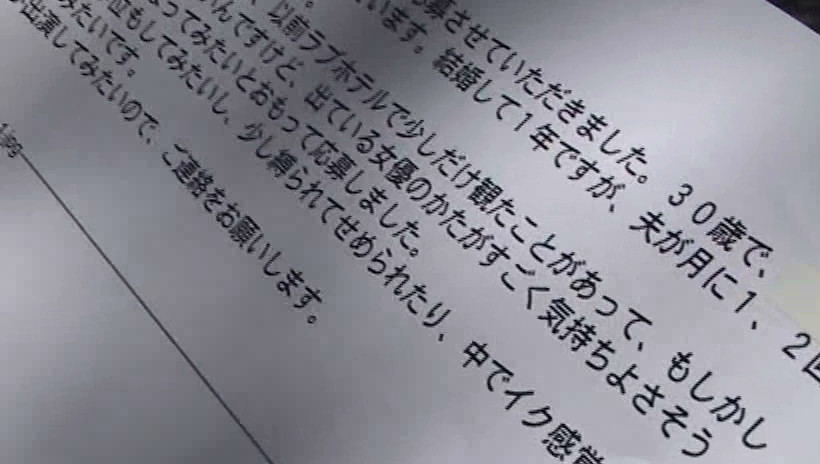 募させていただきました。３０歳で、
います。結婚して１年ですが、夫が月に１、２回
以前ラブホテルで少しだけ観たことがあって、もしかし
んですけど、出ている女優のかたがすごく気持ちよさそう
ってみたいとおもって応募しました。
もしてみたいし、少し縛られてせめられたり、中でイク感覚
みたいです。
出演してみたいので、ご連絡をお願いします。